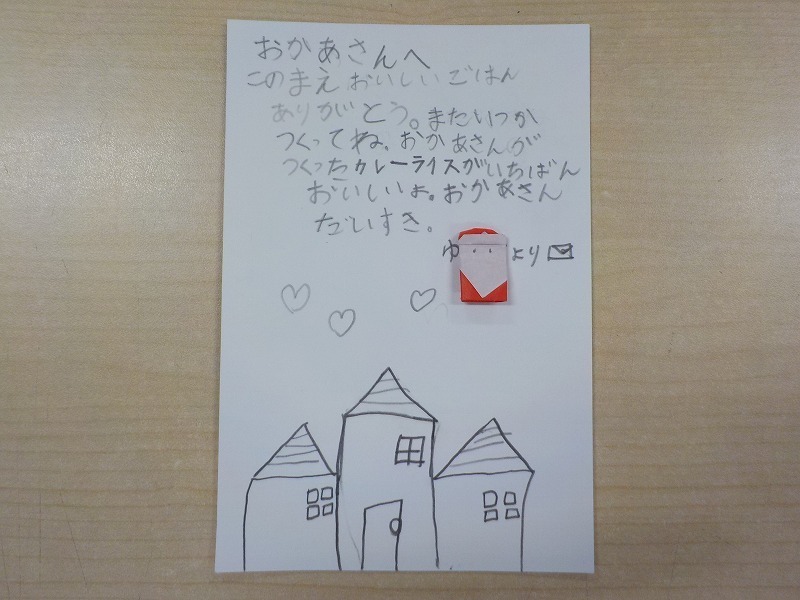 おかあさんへ
このまえおいしいごはん
ありがとう。またいつか
つくってね。おかあさんが
つくったカレーライスがいちばん
おいしいよ。おかあさん
だいすき。
ゆ より